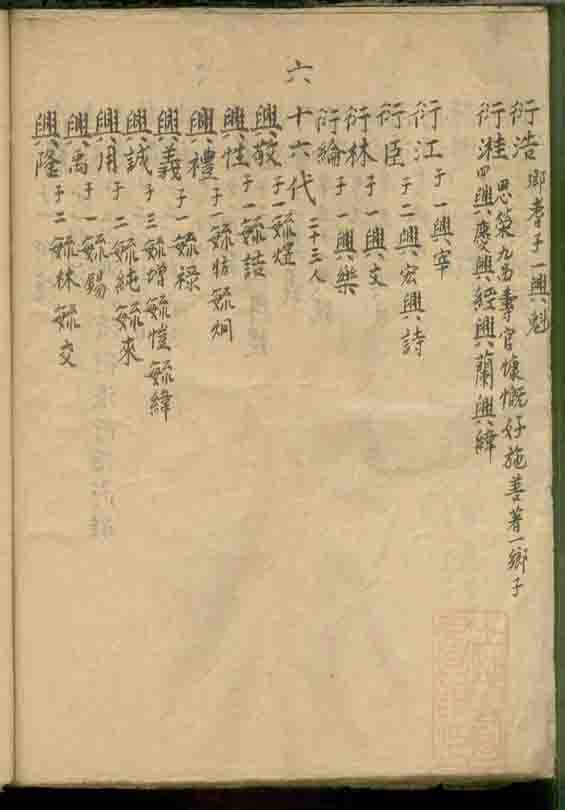 衍浩 鄉耆子一興魁
衍溎 思榮九品壽官慷慨好施善著一鄉子
四興慶興綬興蘭興緯
衍江 子一興宰
衍臣 子二興宏興詩
衍林 子一興文
衍綸 子一興樂
六十六代 二十三人
興敬 子一毓煜
興性 子一毓喆
興禮 子一毓 毓炯
興義 子一毓祿
興誠 子三毓增毓愷毓緯
興周 子二毓純毓來
興禹 子一毓錫
興隆 子二毓林毓文